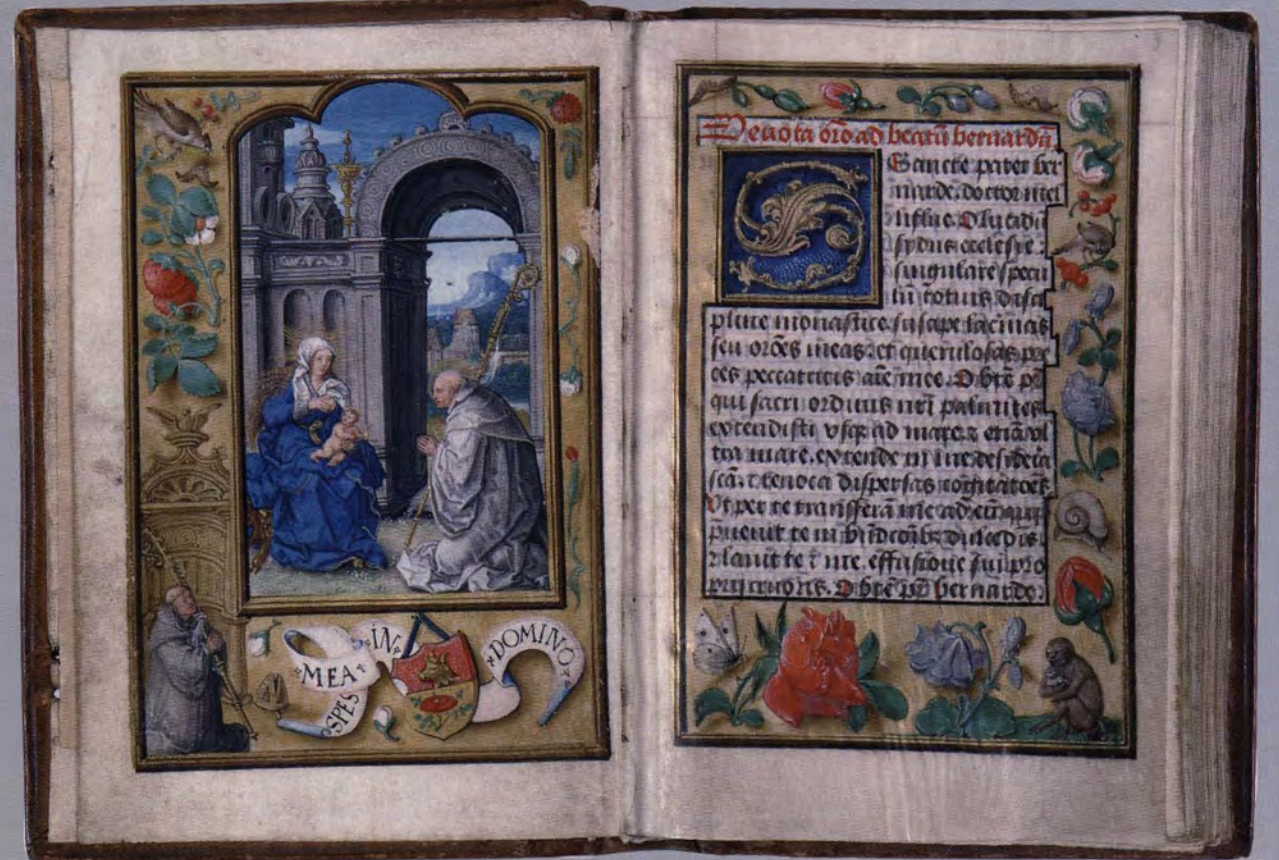 SPES MEA IN DOMINO
Deuota orō ad beatū bernardū
O Sancte pater ber
narde. doctor mel
liflue. O lucidū
sydus ecclesye:
singulare specu
lū totius disci
pline monastice. suscipe lacrimas
seu orōēs meas: et querulosas pre
ces peccatricis aīe mee. O btē pr̄
qui sacri ordinis nr̄i palmites
extendisti vsq̄ ad mare: ⁊ etiā vl
tra mare. extende in me desyderia
scā. ⁊ reuoca dispersas cogitatōēs
Vt per te transferā me ad eū qui
p̄uenit te in bn̄dictōib; dulcedīs
⁊ lauit te ī effusione sui pro
prij cruoris. O btē pr̄ bernarde: